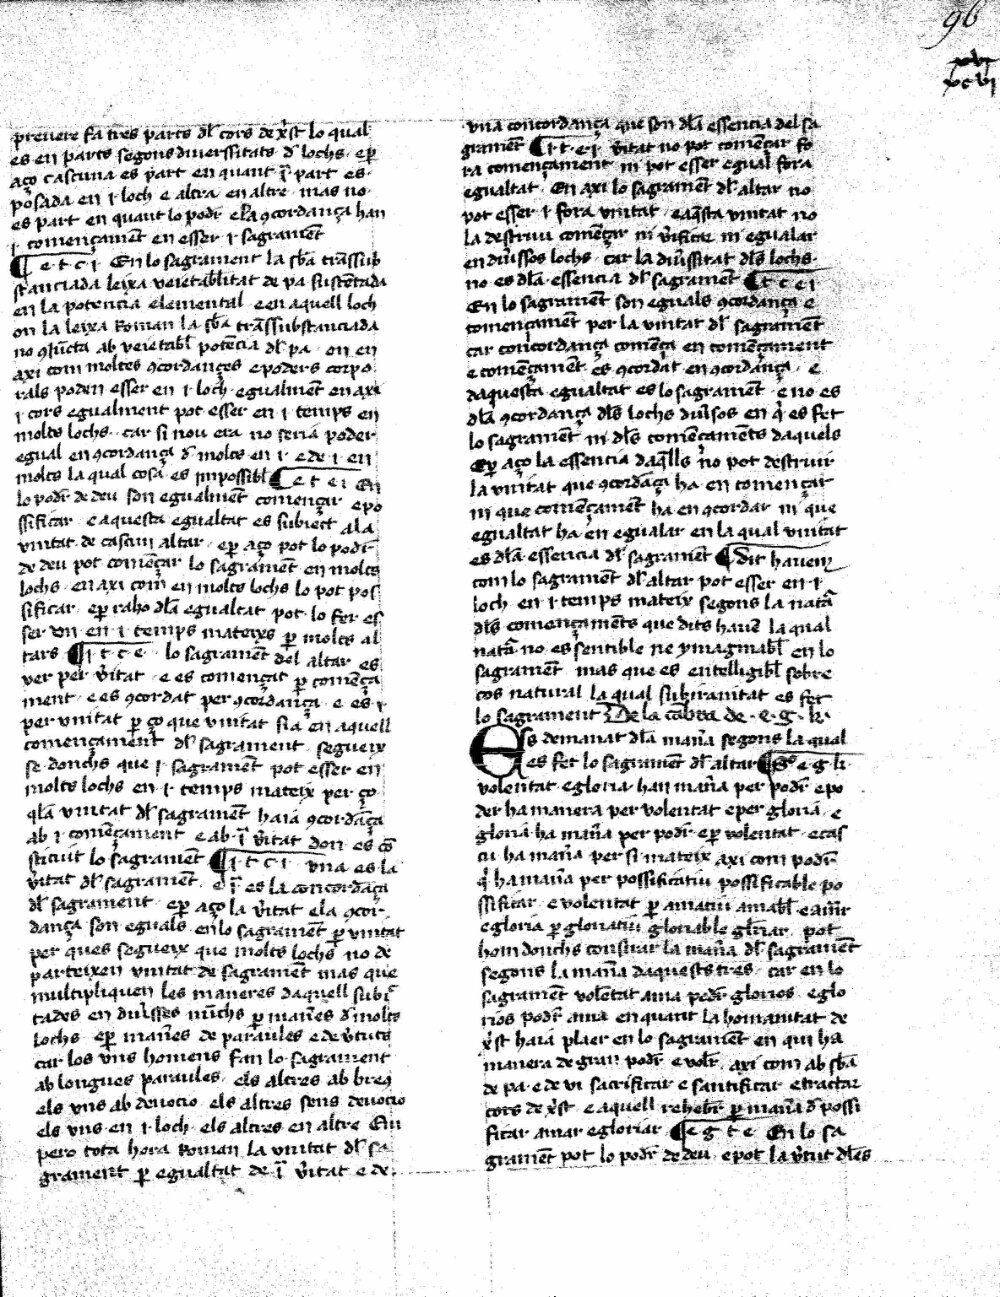 96
xvi
xcvi
prevere fa tres parts dl cors de xst lo qual
es en parts segons diverssitats d lochs · e p̱
aço cascuna es part en quant i part es ·
posada en · i · loch e altra en altre · mas no ·
es part en quant lo poder e la ꝯcordança han
· i · començament en esser · i · sagrament
¶ e · t · c · i · En lo sagrament la sba transsub
stanciada leixa veietablitat de pa sustentada
en la potencia elemental · e en aquell loch
on la leixa roman la sba transsubstanciada
no ꝯiuncta ab veietabl potencia dl pa · on en
axi com moltes ꝯcordançes e poders corpo
rals poden esser en · i · loch · egualment en axi
· i · cors egualment pot esser en · i · temps en
molts lochs · car si nou era no seria poder
egual en ꝯcordança d molts en · i · e de · i · en
molts la qual cosa es impossibl ¶ e · t · c · i · En
lo poder de deu son egualment començar e po
ssificar · e aquesta egualtat es subiect a la
unitat de cascun altar · e p̱ aço pot lo poder
de deu pot començar lo sagrament en molts
lochs · en axi com en molts lochs lo pot pos
sificar · e p̱ raho dla egualtat pot lo fer es
ser un en · i · temps mateix p̱ molts al
tars ¶ i · t · c · e · lo sagrament del altar es
ver per vitat · e es començat p̱ comença
ment · e es ꝯcordat per ꝯcordança · e es · i ·
per unitat p̱ ço que unitat sia en aquell
començament dl sagrament · segueix
se donchs que · i · sagrament pot esser en
molts lochs en · i · temps mateix per ço
q la unitat dl sagrament haia ꝯcordança
ab · i · començament e ab · i · vitat don es co
stituit lo sagrament ¶ i · t · c · i · una es la
vitat dl sagrament · e i es la concordança
dl sagrament · e p̱ aço la vitat e la ꝯcor
dança son eguals en lo sagrament p̱ unitat
per ques segueix que molts lochs no de
parteixen unitat de sagrament mas que
multipliquen les maneres daquell subi
tades en diusses municħs p̱ manes d molts
lochs · e p̱ manes de paraules e de vtuts
car los uns homens fan lo sagrament
ab longues paraules · els altres ab breus
els uns ab devocio · els altres sens devocio
els uns en · i · loch · els altres en altre Em
pero tota hora roman la unitat dl sa
grament p̱ egualtat de i vitat e de ·
una concordança que son dla essencia del sa
grament ¶ i · t · e · i · vitat no pot començar fo
ra començament ni pot esser egual fora
egualtat · En axi lo sagrament dl altar no
pot esser · i · fora unitat · e aqsta unitat no
la destruu començar ni vificar ni egualar
en diussos lochs · car la diussitat dls lochs ·
no es dla essencia dl sagrament ¶ t · c · e · i ·
En lo sagrament son eguals ꝯcordança e
començament per la unitat dl sagrament
car concordança comença en començament
e començament es ꝯcordat en ꝯcordança · e
daquesta egualtat es lo sagrament · e no es
dla ꝯcordança dls lochs diusos en q es fet
lo sagrament ni dls començaments daquels
E p̱ aço la essencia daqlls no pot destruir
la unitat que ꝯcordança ha en començar
ni que començament ha en ꝯcordar ni que
egualtat ha en egualar en la qual unitat
es dla essencia dl sagrament ¶ dit havem
com lo sagrament dl altar pot esser en · i ·
loch · en · i · temps mateix segons la nata
dls començaments que dits havem la qual
nata no es sentible ne ymaginabl en lo
sagrament mas que es entelligibl sobre
cos natural la qual subiranitat es fet
lo sagrament De la cambra de · e · g · k ·
Es demanat dla manera segons la qual
es fet lo sagrament dl altar ¶ S · e · g · k ·
volentat e gloria han mana per poder e po
der ha manera per volentat e per gloria · e
gloria ha mana per poder e p̱ volentat · e cas
cu ha mana per si mateix axi com poder
q ha mana per possificatiu possificable po
ssificar · e volentat p̱ amatiu amabl e amar
e gloria p̱ gloriatiu gloriable gloriar pot
hom donchs consirar la mana dl sagrament
segons la mana daquests tres · car en lo
sagrament volentat ama poder glorios · e glo
rios poder ama en quant la homanitat de
xst haia plaer en lo sagrament en qui ha
manera de gran poder e voler · axi com ab sba
de pa · e de vi sacrificar e santificar e tractar
cors de xst · e aquell rehebre p̱ mana d possi
ficar amar e gloriar ¶ e · g · t · e · En lo sa
grament pot lo poder de deu · e pot la vtut dles